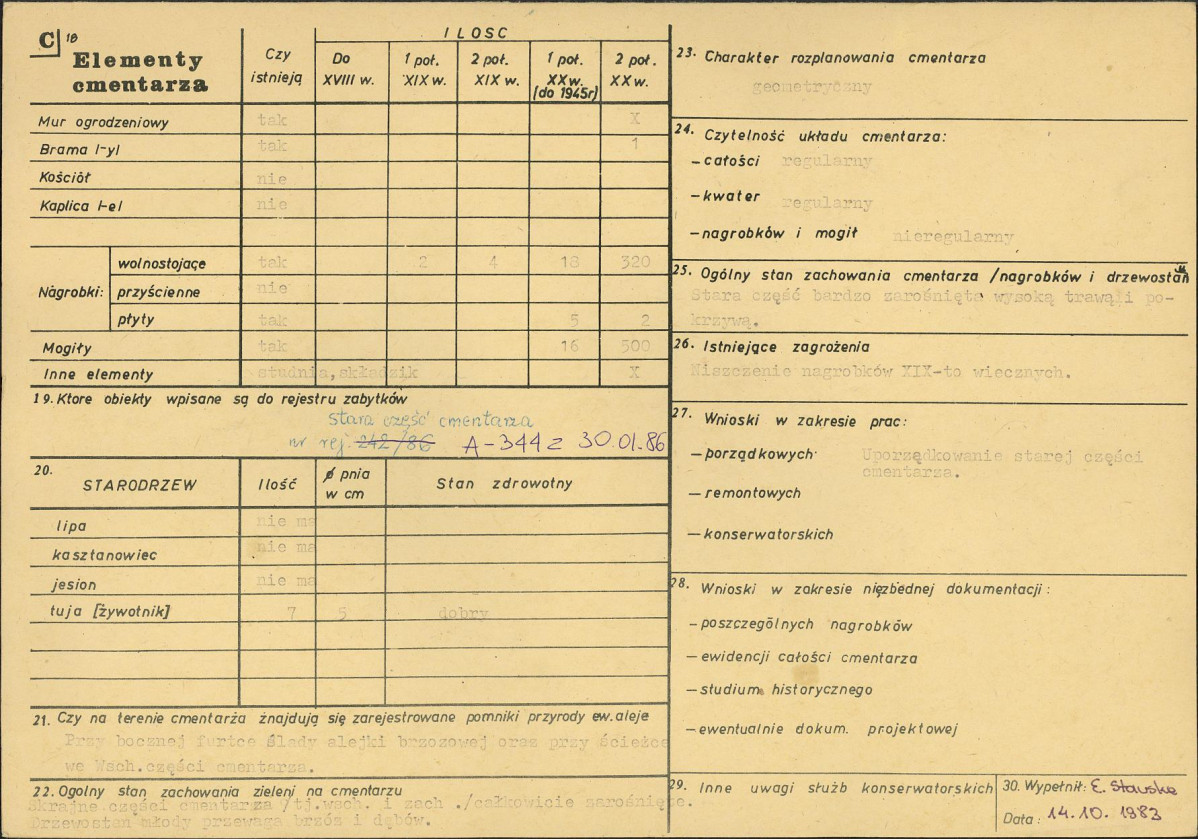 C 18
Elementy
cmentarza
Czy
istnieją
ILOSC
Do
XVIII w.
1 poł.
XIX w.
2 poł.
XIX w.
1 poł.
XX w.
(do 1945r)
2 poł.
XX w.
Mur ogrodzeniowy tak X
Brama I-yl tak 1
Kościół nie
Kaplica I-el nie
Nagrobki:
wolnostojące tak 2 4 18 320
przyścienne nie
płyty tak 5 2
Mogiły tak 16 500
Inne elementy studnia,składzik X
19. Ktore obiekty wpisane są do rejestru zabytków
stara część cmentarza
nr rej. 242/86 A-344 z 30.01.86
20.
STARODRZEW Ilość ϕ pnia
w cm Stan zdrowotny
lipa nie ma
kasztanowiec nie ma
jesion nie ma
tuja [żywotnik] 7 5 dobry
21. Czy na terenie cmentarza znajdują się zarejestrowane pomniki przyrody ew. aleje
Przy bocznej furtce ślady alejki brzozowej oraz przy ścieżce
we Wsch.części cmentarza.
22. Ogolny stan zachowania zieleni na cmentarzu
Skrajne części cmentarza /tj.wsch. i zach ./całkowicie zarośnięte.
Drzewostan młody przewaga brzóz i dębów.
23. Charakter rozplanowania cmentarza
geometryczny
24. Czytelność układu cmentarza:
– całości regularny
– kwater regularny
– nagrobków i mogił nieregularny
25. Ogólny stan zachowania cmentarza /nagrobków i drzewostanu
Stara część bardzo zarośnięta wysoką trawą i po-
krzywą.
26. Istniejące zagrożenia
Niszczenie nagrobków XIX-to wiecznych.
27. Wnioski w zakresie prac:
– porządkowych Uporządkowanie starej części
cmentarza.
– remontowych
– konserwatorskich
28. Wnioski w zakresie niezbednej dokumentacji:
– poszczególnych nagrobków
– ewidencji całości cmentarza
– studium historycznego
– ewentualnie dokum. projektowej
29. Inne uwagi służb konserwatorskich
30. Wypełnił: E. Stawska
Data: 14.10.1983